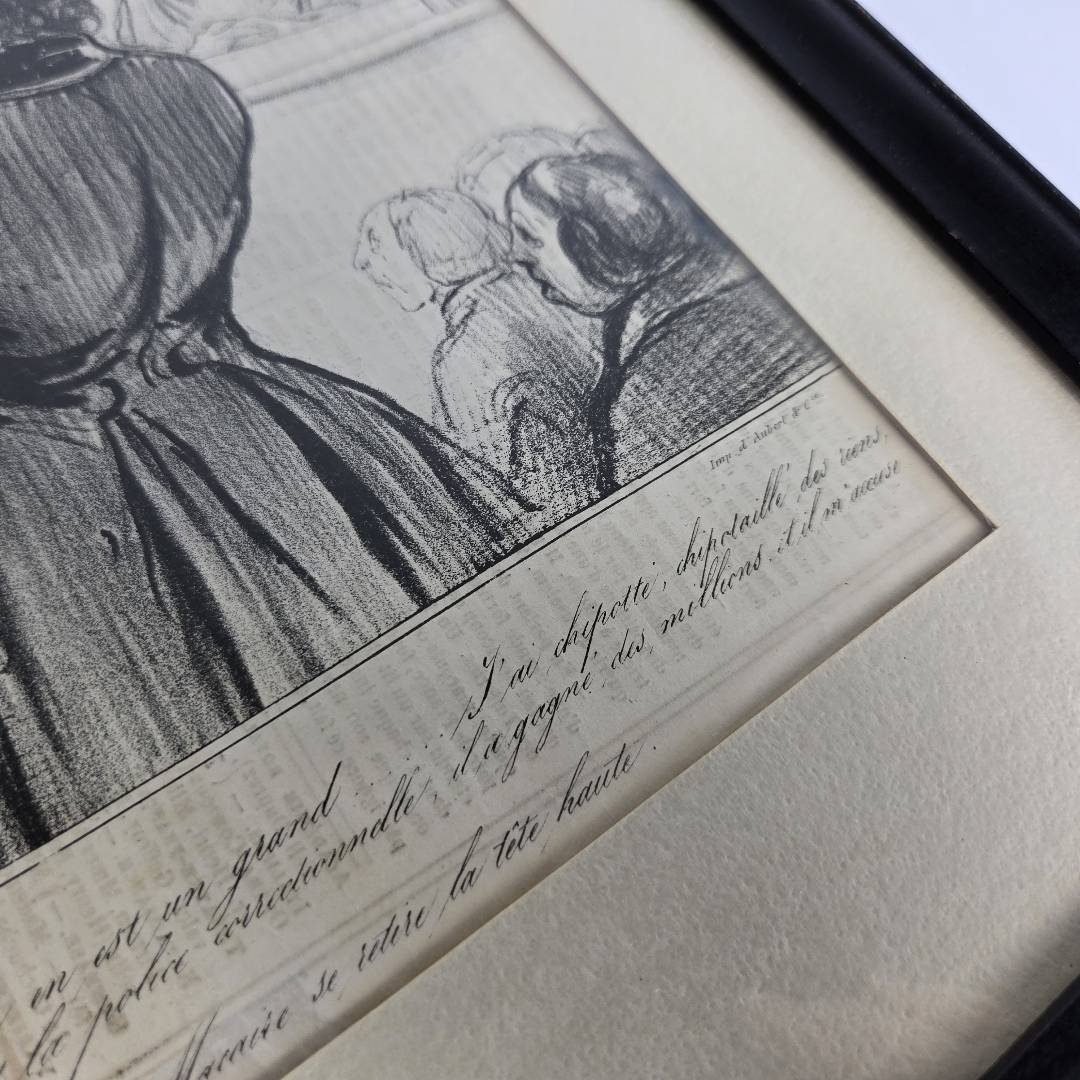 Imp. d'Aubert & Cie.
en est un grand ........ J'ai chipotté, chipotaillé des riens,
la police correctionnelle, il a gagné des millions, et il m'accuse
Macaire se retire la tête haute.